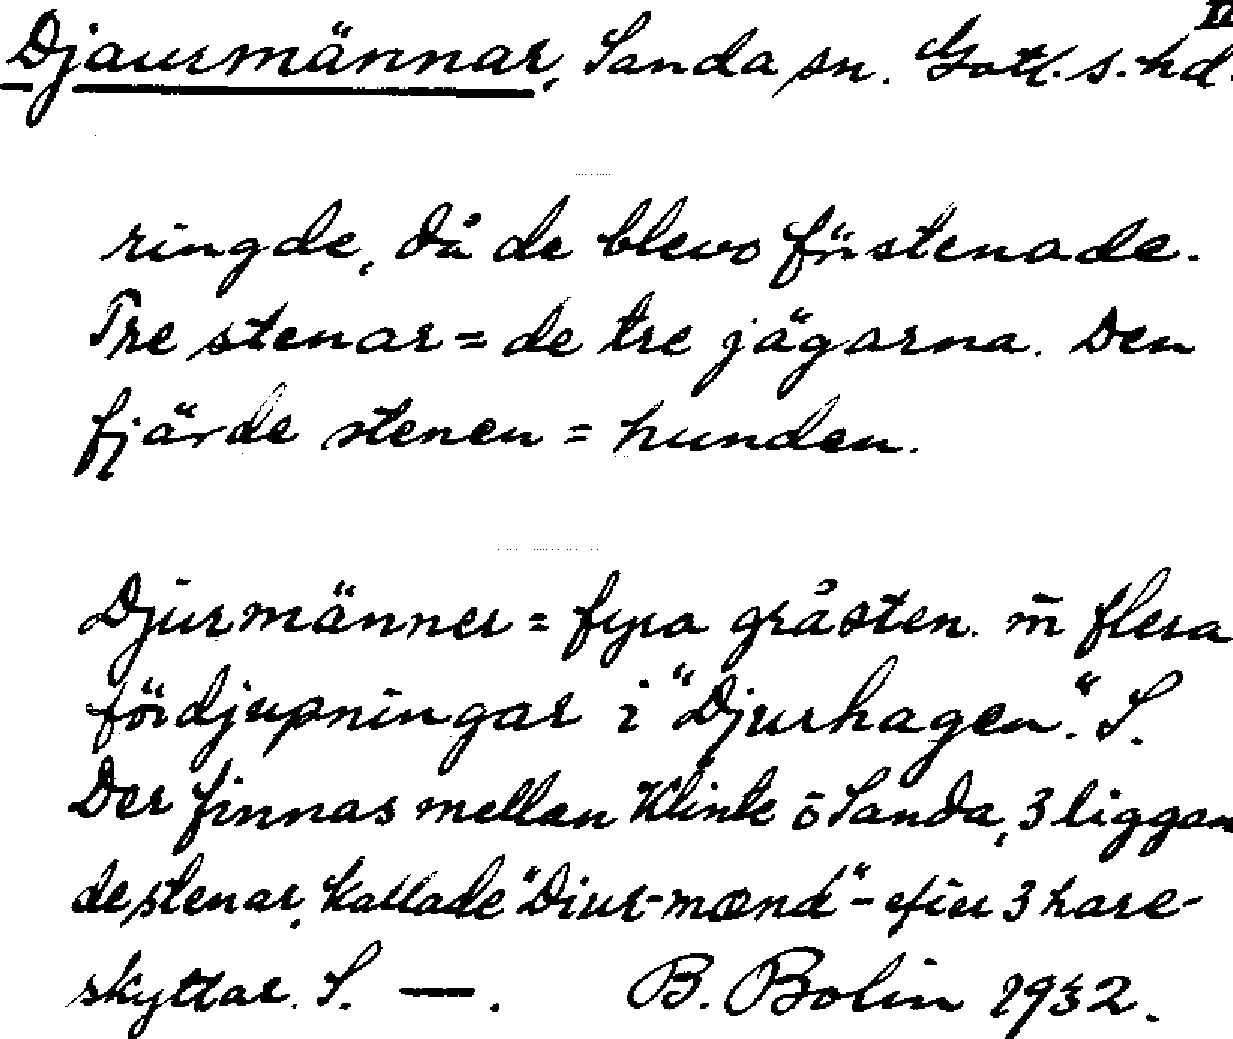 Djaurmännar, Sanda sn. Gotl. s. hd. II
ringde, då de blevo förstenade.
Tre stenar = de tre jägarna. Den
fjärde stenen = hunden.
Djurmänner = fyra gråsten. m̄ flera
fördjupningar i "Djurhagen". S.
Der finnas mellan Klinte ō Sanda, 3 liggan
de stenar, kallade "Diur-mænd" - efter 3 hare-
skyttar. S. —. B. Bolin 1932.